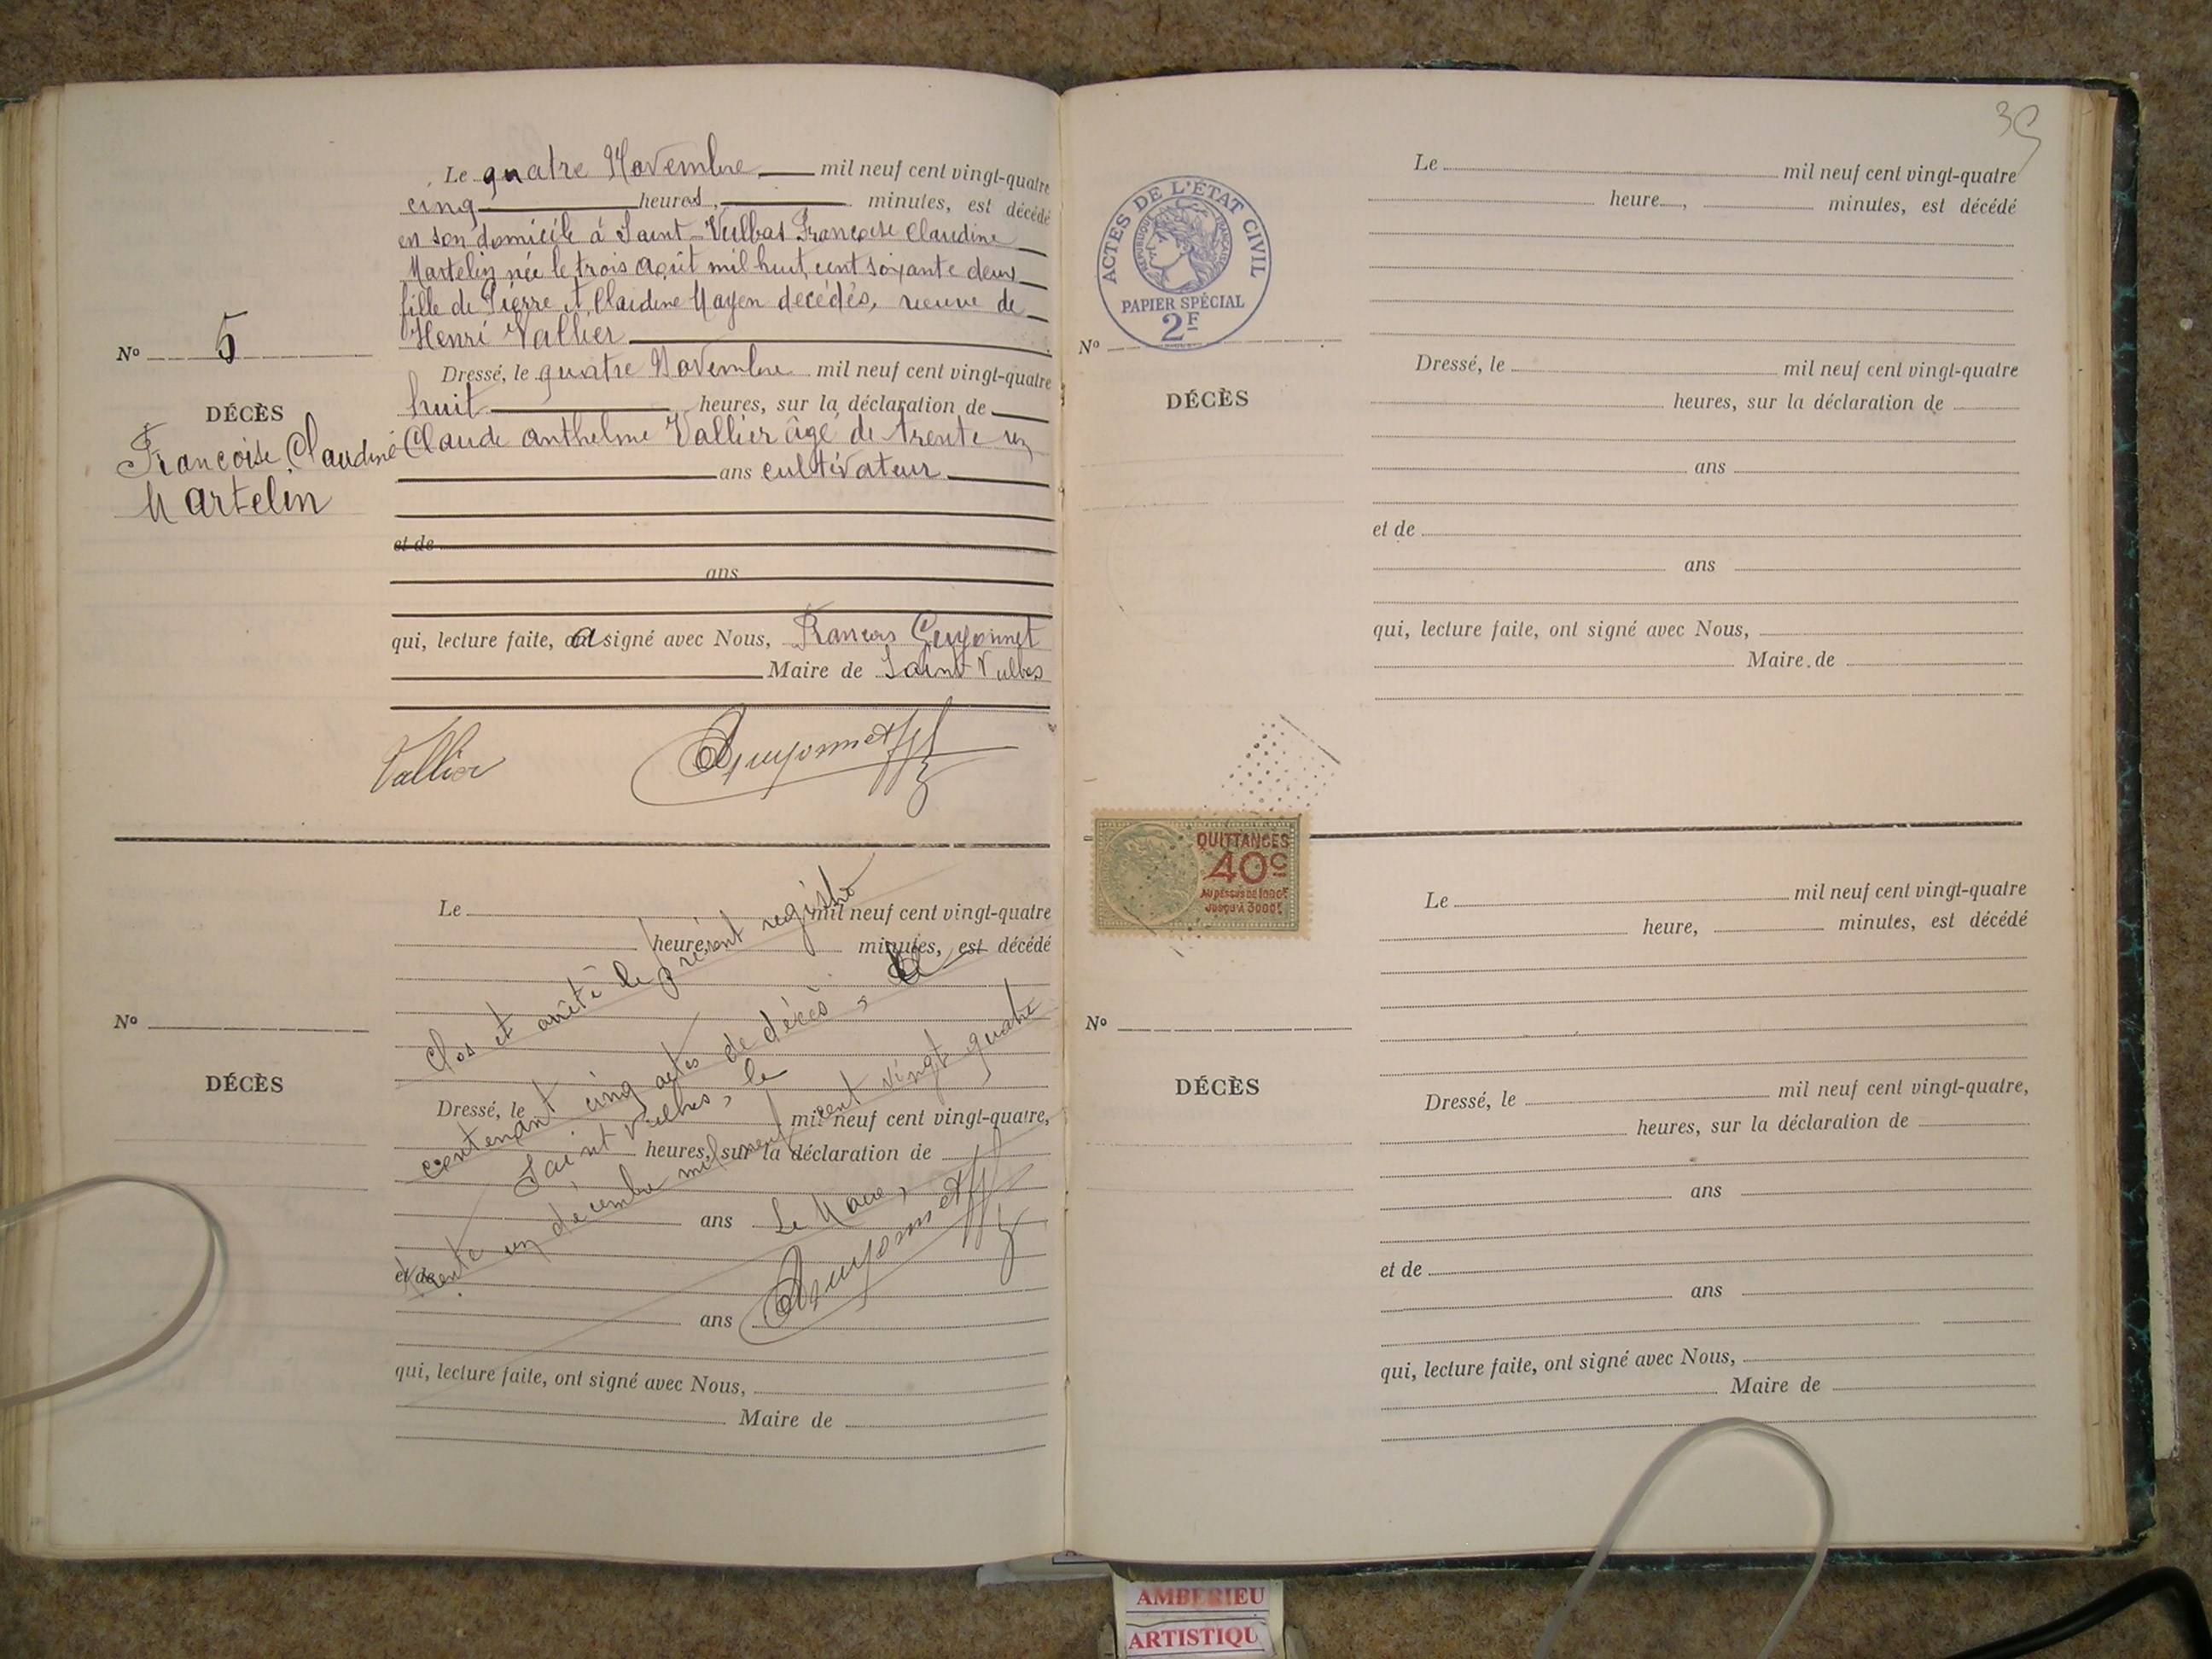 Le quatre Novembre mil neuf cent vingt-quatre
cinq heures, minutes, est décédé
en son domicile à Saint-Vulbas Françoise Claudine
Martelin née le trois août mil huit cent soixante deux
fille de Pierre et Claudine Mayen decédés, veuve de
Henri Vallier
Nº 5
Dressé, le quatre Novembre mil neuf cent vingt-quatre
huit heures, sur la déclaration de
DÉCÈS
Françoise Claudine
Martelin
Claude anthelme Vallier âgé de trente un
ans cultivateur
et de
ans
qui, lecture faite, a signé avec Nous, Francois Guyonnet
Maire de Saint Vulbas
Vallier
Guyonnet
Le mil neuf cent vingt-quatre
heure, minutes, est décédé
Nº
DÉCÈS
Dressé, le mil neuf cent vingt-quatre,
heures, sur la déclaration de
ans
et de
ans
qui, lecture faite, ont signé avec Nous,
Maire de
Clos et arrêté le présent registre
contenant cinq actes de décès,
Saint Vulbas, le
trente un décembre mil neuf cent vingt quatre
Le Maire,
Guyonnet
39
ACTES DE L'ÉTAT CIVIL
RÉPUBLIQUE FRANÇAISE
PAPIER SPÉCIAL
2F
Le mil neuf cent vingt-quatre
heure, minutes, est décédé
Nº
DÉCÈS
Dressé, le mil neuf cent vingt-quatre
heures, sur la déclaration de
ans
et de
ans
qui, lecture faite, ont signé avec Nous,
Maire de
QUITTANCES
40c
AU DESSUS DE 1000F
JUSQU'À 3000F
Le mil neuf cent vingt-quatre
heure, minutes, est décédé
Nº
DÉCÈS
Dressé, le mil neuf cent vingt-quatre,
heures, sur la déclaration de
ans
et de
ans
qui, lecture faite, ont signé avec Nous,
Maire de
AMBERIEU
ARTISTIQU